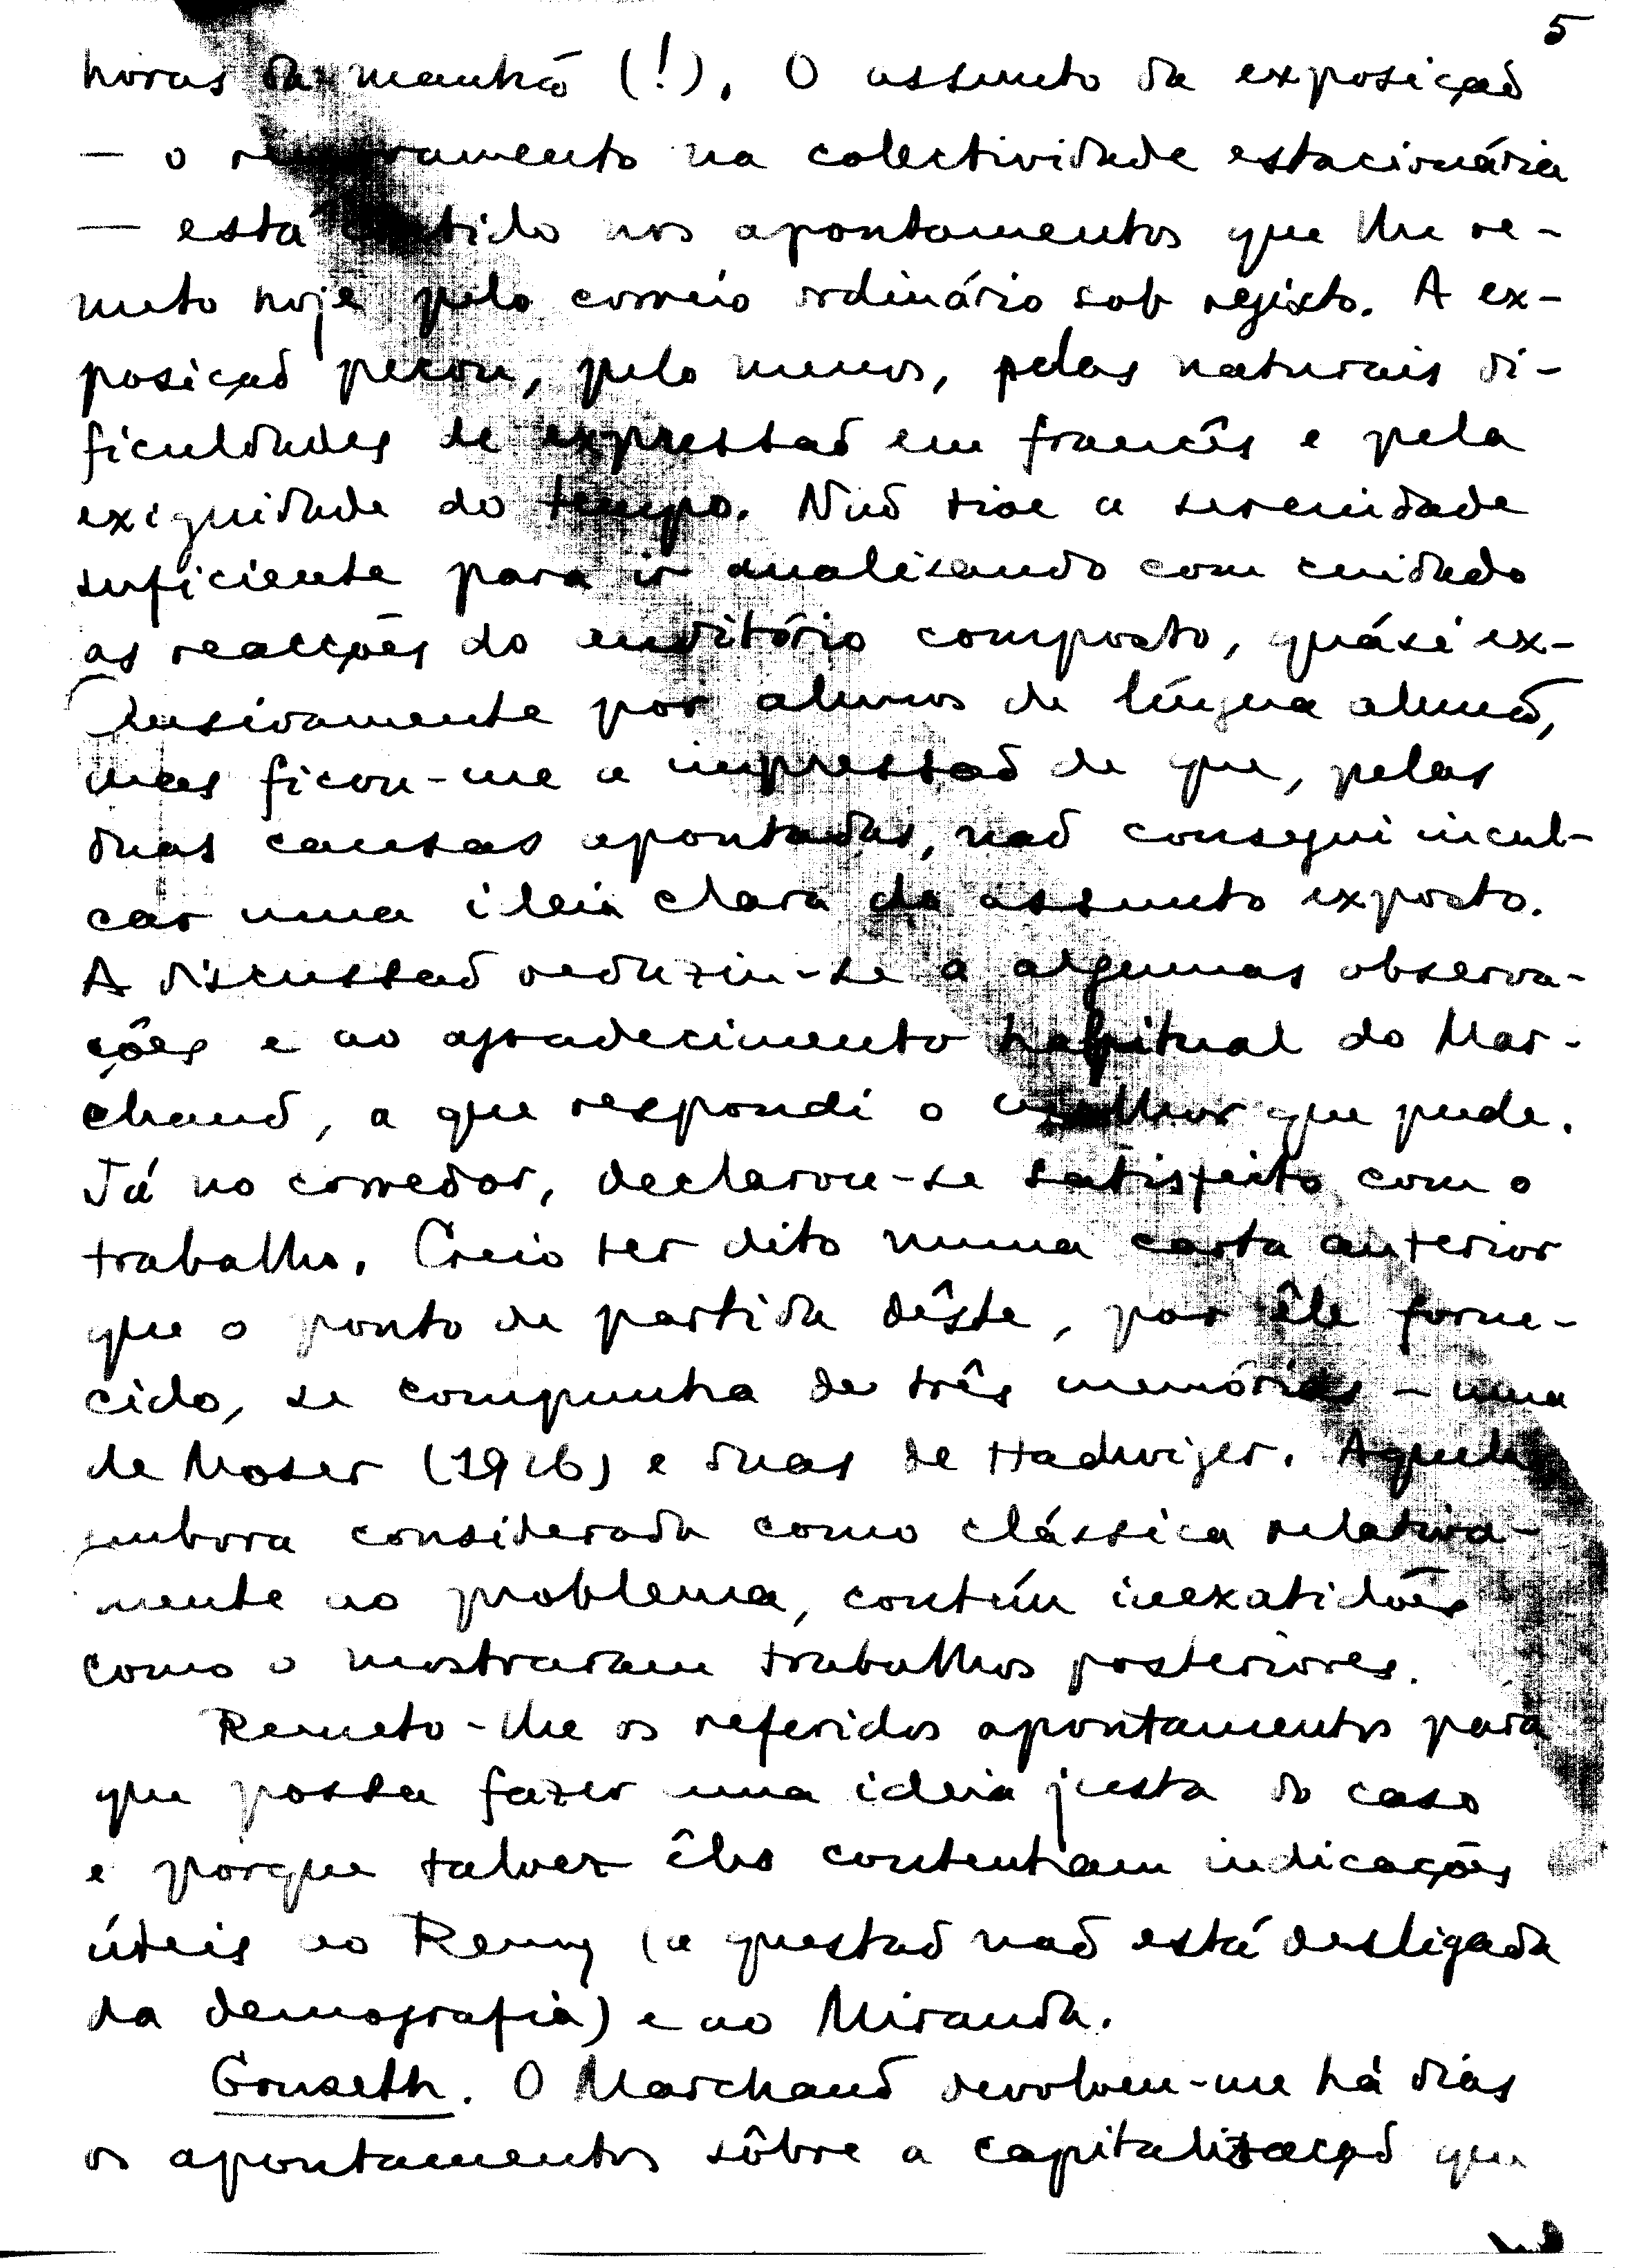 5
horas da manhã (!). O assunto da exposição
— o renovamento na colectividade estacionária
— está contido nos apontamentos que lhe re-
meto hoje pelo correio ordinário sob registo. A ex-
posição pecou, pelo menos, pelas naturais di-
ficuldades de expressão em francês e pela
exiguidade do tempo. Não tive a serenidade
suficiente para ir analisando com cuidado
as reacções do auditório composto, quási ex-
clusivamente por alunos de língua alemã,
mas ficou-me a impressão de que, pelas
duas causas apontadas, não consegui incul-
car uma ideia clara do assunto exposto.
A discussão reduziu-se a algumas observa-
ções e ao agradecimento habitual do Mar-
chand, a que respondi o melhor que pude.
Já no corredor, declarou-se satisfeito com o
trabalho. Creio ter dito numa carta anterior
que o ponto de partida dêste, por êle forne-
cido, se compunha de três memórias – uma
de Moser (1926) e duas de Hadwiger. Aquela
embora considerada como clássica relativa-
mente ao problema, contém inexatidões
como o mostraram trabalhos posteriores.
Remeto-lhe os referidos apontamentos para
que possa fazer uma ideia justa do caso
e porque talvez êles contenham indicações
úteis ao Remy (a questão não está desligada
da demografia) e ao Miranda.
Gonseth. O Marchand devolveu-me há dias
os apontamentos sôbre a capitalização que